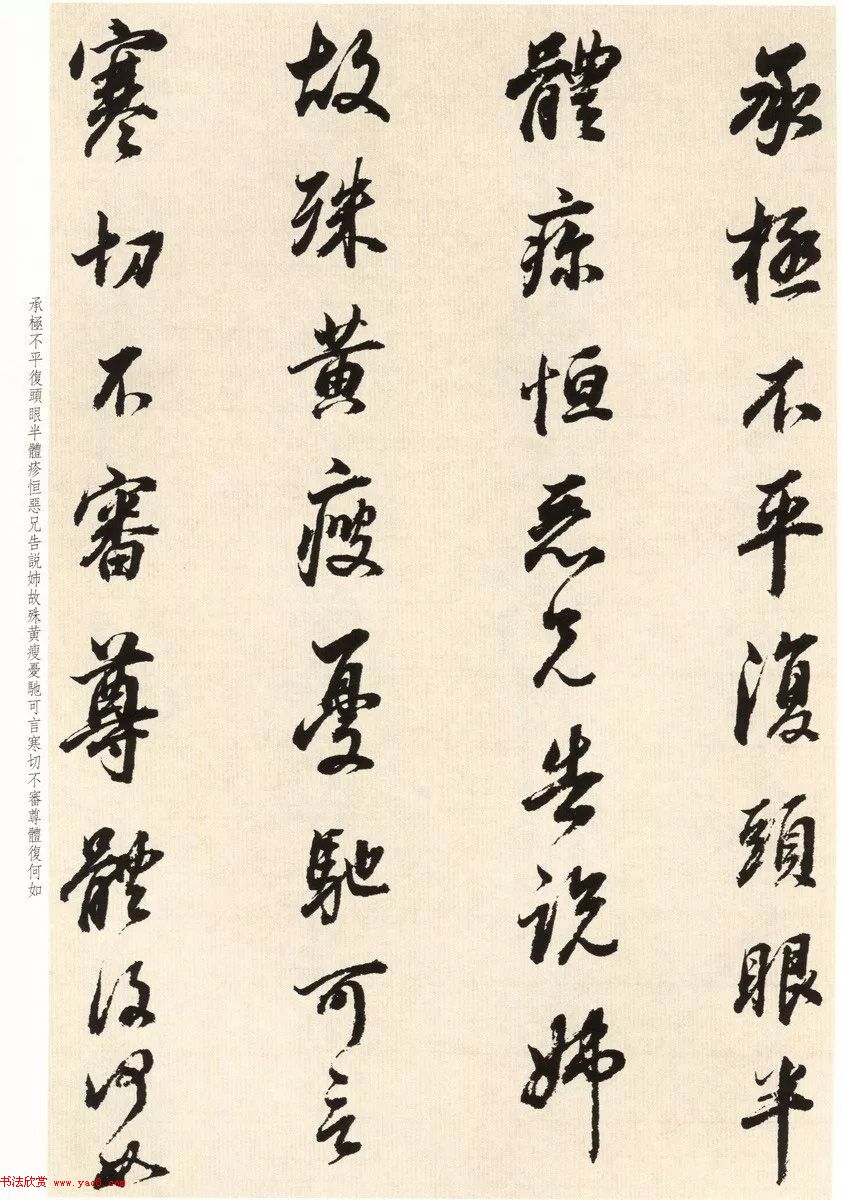 承極不平復頭眼半
體疹恒惡兄告說姊
故殊黃瘦憂馳可言
寒切不審尊體復何如
承極不平復頭眼半體疹恒惡兄告說姊故殊黃瘦憂馳可言寒切不審尊體復何如
书法欣赏 www.yac8.com